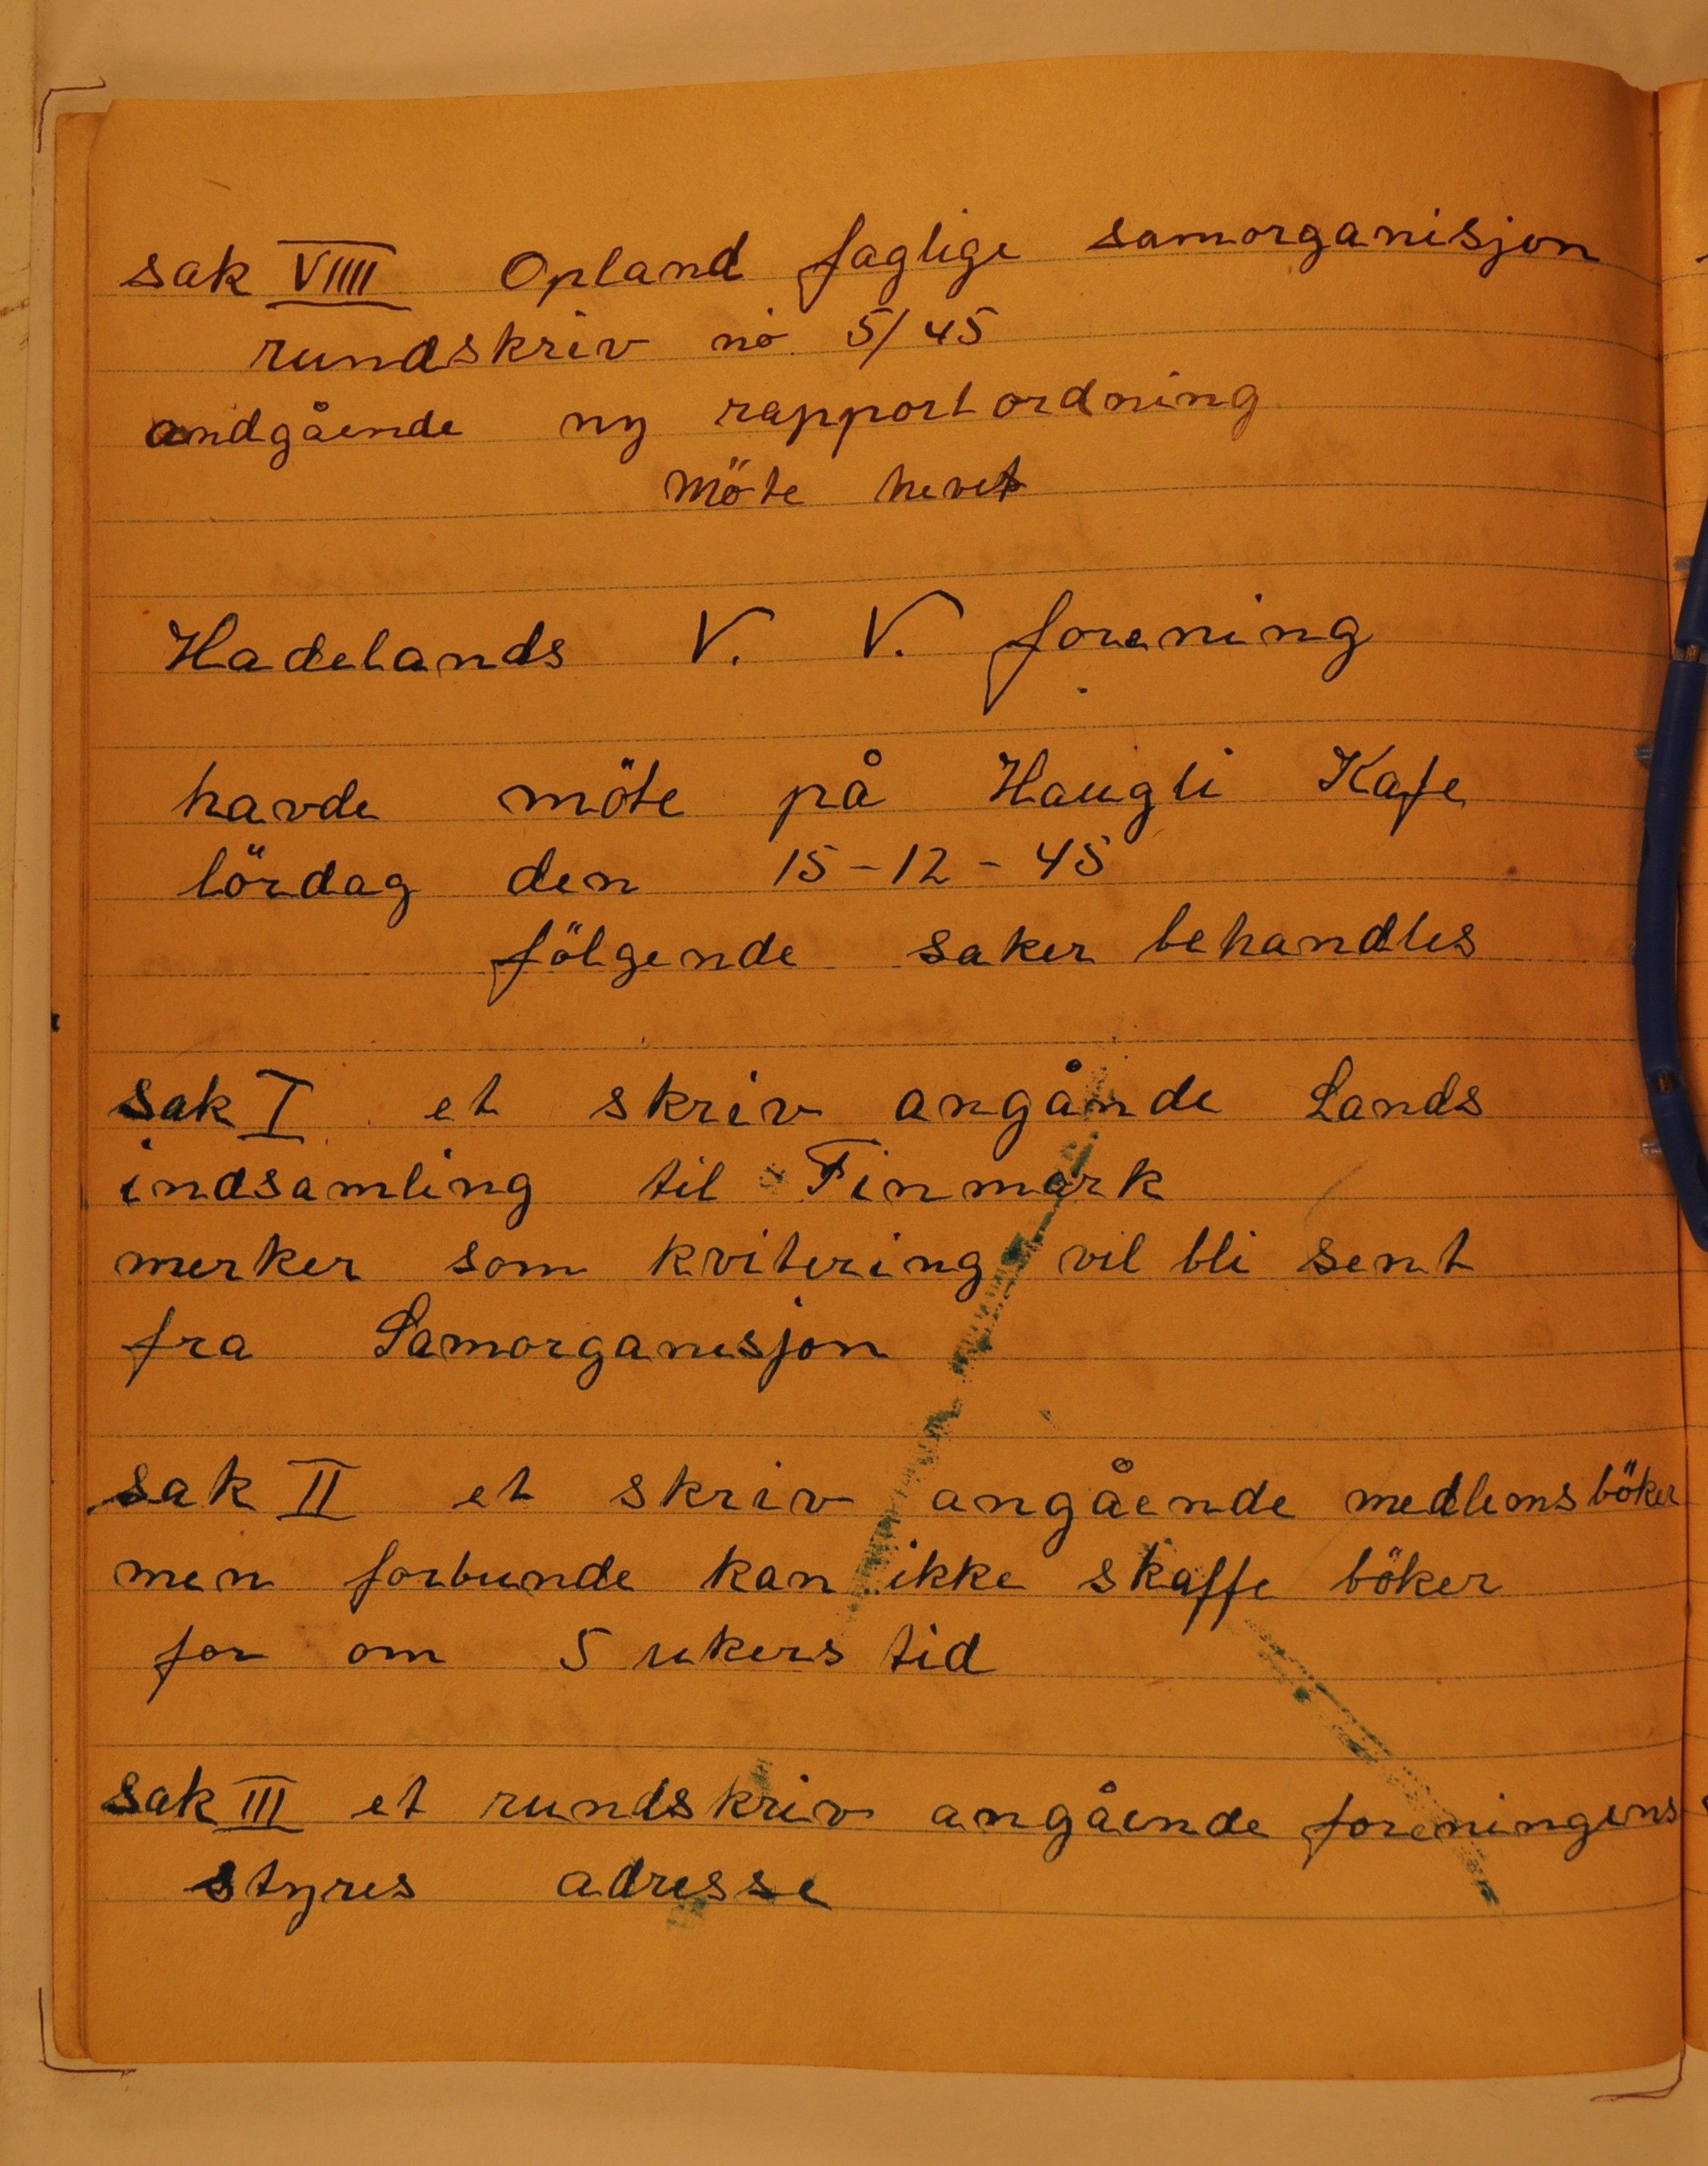 sak VIIII Opland faglige samorganisjon
rundskriv no. 5/45
andgående ny rapportordning
Möte hevet
Hadelands V. V. forening
havde möte på Haugli Kafe
lördag den 15-12-45
fölgende saker behandles
Sak I et skriv angånde Lands
indsamling til Finmark
merker som kvitering vil bli sent
fra Samorganisjon
Sak II et skriv angående medlemsböker
men forbunde kan ikke skaffe böker
for om 5 ukers tid
Sak III et rundskriv angående foreningens
styres adresse